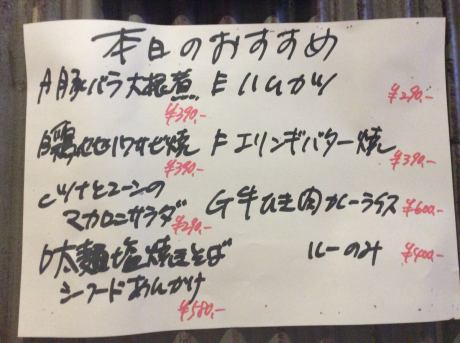 本日のおすすめ
A豚バラ大根煮
¥390,-
B鶏ももワサビ焼
¥390,-
Cツナとコーンの
マカロニサラダ
¥290,-
D太麺塩焼きそば
シーフードあんかけ
¥580,-
Eハムカツ
¥290,-
Fエリンギバター焼
¥390,-
G牛ひき肉カレーライス
¥600,-
ルーのみ
¥400,-